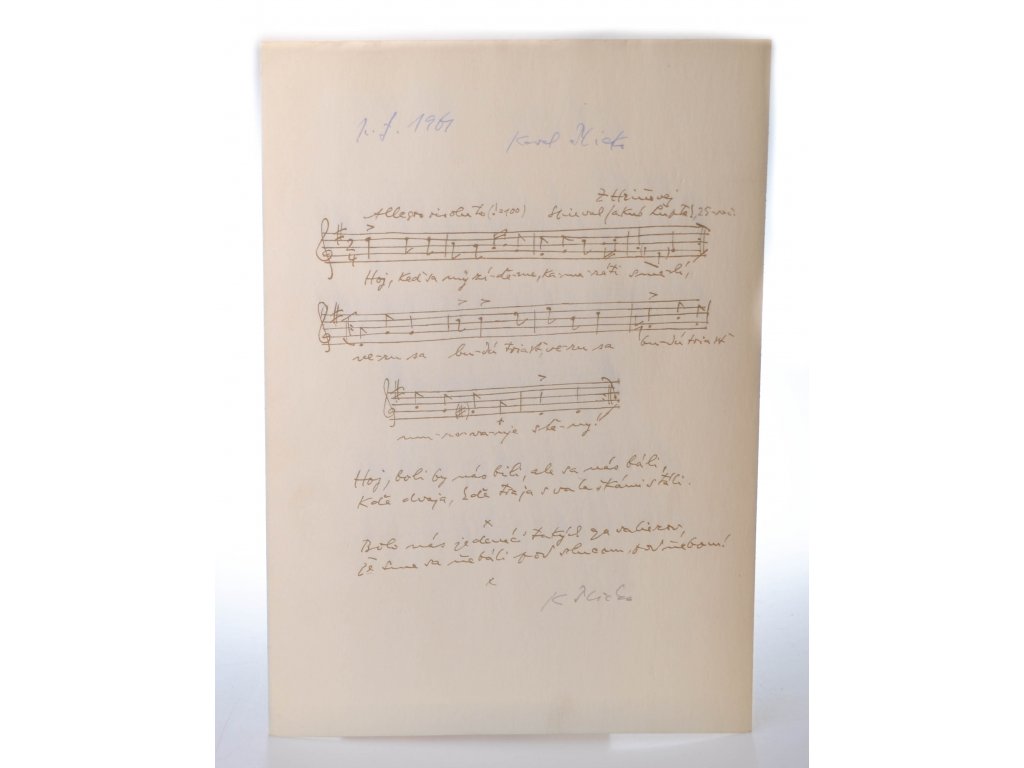 p. f. 1961
Karel Plicka
Z Hriňovej
Allegro risoluto (♩=100) Spieval Jakub 25-roč.
Hoj, keď sa my zí-de-me, ka-me-ráti smelí,
ve-ru sa bu-dú triasť, ve-ru sa bu-dú triasť
mu-ro-va-nje ste-ny!
Hoj, boli by nás bili, ale sa nás báli,
Kďe dvaja, kďe traja s valaškámi stáli.
Bolo nás jedenáč takých
že sme sa ňebáli pod slncom, pod ňebom!
K Plicka